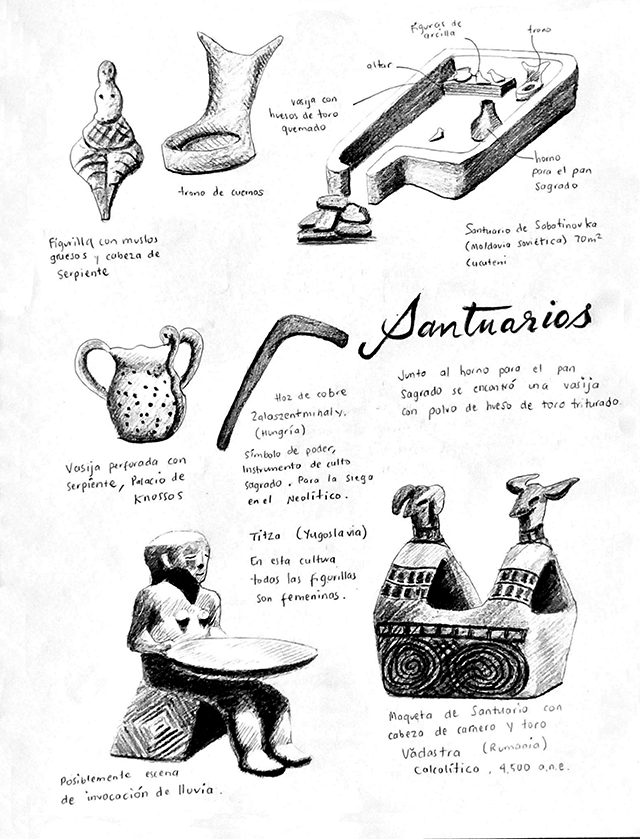 Figuras de
arcilla
trono
altar
vasija con
huesos de toro
quemado
horno
para el pan
sagrado
trono de cuernos
Figurilla con muslos
gruesos y cabeza de
serpiente
Santuario de Sabatinovka
(Moldavia soviética) 70m²
Cucuteni
Santuarios
Junto al horno para el pan
sagrado se encontró una vasija
con polvo de hueso de toro triturado.
Hoz de cobre
Zalaszentmihaly.
(Hungría)
Símbolo de poder,
instrumento de culto
sagrado. Para la siega
en el Neolítico.
Vasija perforada con
serpiente, Palacio de
Knossos
Titza (Yugoslavia)
En esta cultura
todas las figurillas
son femeninas.
Maqueta de Santuario con
cabeza de carnero y toro
Vădastra (Rumanía)
Calcolítico, 4,500 a.n.e.
Posiblemente escena
de invocación de lluvia.